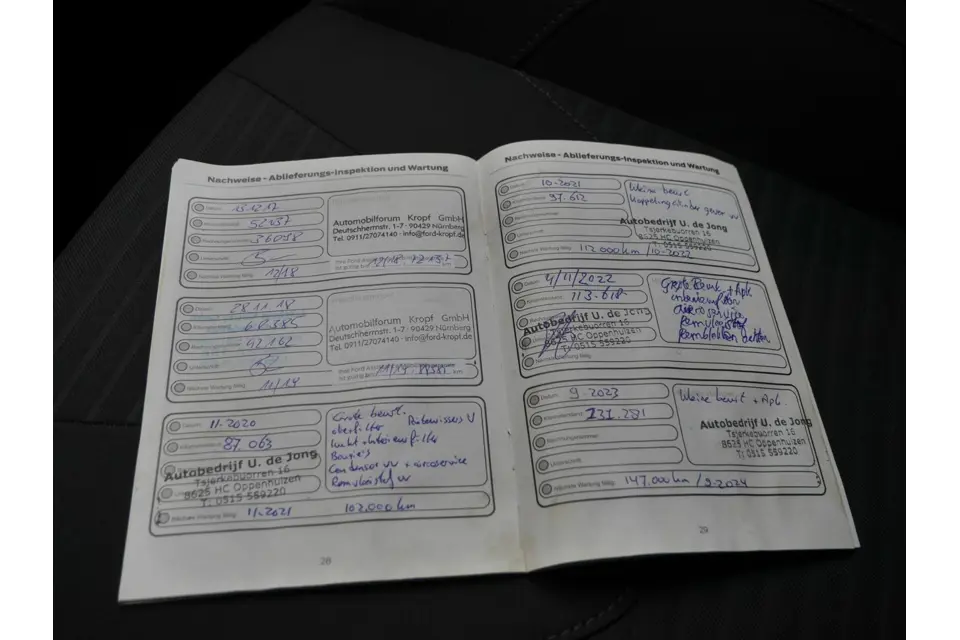 Nachweise - Ablieferungs-Inspektion und Wartung
Datum 13.12.17
52137
36098
Automobilforum Kropf GmbH
Deutschherrnstr. 1-7 · 90429 Nürnberg
Tel. 0911/27074140 · info@ford-kropf.de
Unterschrift
Nächste Wartung fällig 12/18
Datum 28.11.18
68385
92162
Automobilforum Kropf GmbH
Deutschherrnstr. 1-7 · 90429 Nürnberg
Tel. 0911/27074140 · info@ford-kropf.de
Unterschrift
Nächste Wartung fällig 11/19
Datum 11-2020
Kilometerstand 87.063
Grote beurt.
oliefilter Ruitenwissers V
lucht + interieurfilter
Bougies
Condensor vv + aircoservice
Remvloeistof vv
Autobedrijf U. de Jong
Tsjerkebuorren 16
8625 HC Oppenhuizen
T: 0515 559220
Nächste Wartung fällig 11-2021 102.000 km
28
Nachweise - Ablieferungs-Inspektion und Wartung
Datum 10-2021
97.612
Kleine beurt
Autobedrijf U. de Jong
Tsjerkebuorren 16
8625 HC Oppenhuizen
T: 0515 559220
Nächste Wartung fällig 112.000 km / 10-2022
Datum 4/11/2022
Kilometerstand 113-618
Grote Beurt + Apk
aircoservice
Remvloeistof
Autobedrijf U. de Jong
Tsjerkebuorren 16
8625 HC Oppenhuizen
T: 0515 559220
Nächste Wartung fällig
Datum 9-2023
Kilometerstand 131.281
Kleine beurt + Apk.
Rechnungsnummer
Autobedrijf U. de Jong
Tsjerkebuorren 16
8625 HC Oppenhuizen
T: 0515 559220
Unterschrift
Nächste Wartung fällig 147.000 km / 9-2024
29